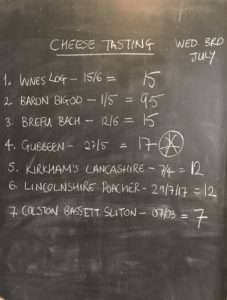 CHEESE TASTING
WED 3RD
JULY
1. WNES LOG - 15/6 = 15
2. BARON BIGOD - 1/5 = 9.5
3. BREFU BACH - 12/6 = 15
4. GUBBEEN - 27/5 = 17
5. KIRKHAM'S LANCASHIRE - 7/4 = 12
6. LINCOLNSHIRE POACHER - 29/7/17 = 12
7 COLSTON BASSETT SLITON - 07/03 = 7